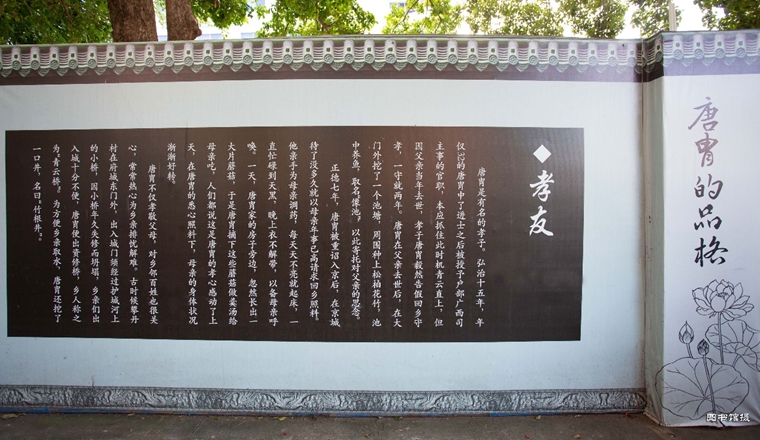 唐胄的品格
◆孝友
唐胄是有名的孝子。弘治十五年，年
仅32的唐胄中了进士之后被授予户部广西司
主事的官职，本应抓住此时机青云直上，但
因父亲当年去世，孝子唐胄毅然告假回乡守
孝，一守就两年。唐胄在父亲去世后，在大
门外挖了一个池塘，周围种上松柏花竹，池
中养鱼，取名像池，以此寄托对父亲的思念。
正德七年，唐胄姓重诏入京后，在京城
待了没多久就以母亲年事已高请求回乡照料。
他亲手为母亲调药，每天天不亮就起床，一
直忙碌到天黑，晚上衣不解带，以备母亲呼
唤。一天，唐胄家的房子旁边，忽然长出一
大片蘑菇，于是唐胄摘下这些蘑菇做菜汤给
母亲吃，人们都说这是唐胄的孝心感动了上
天，在唐胄的悉心照料下，母亲的身体状况
渐渐好转。
唐胄不仅孝敬父母，对乡邻百姓也很关
心，常常热心为乡亲排忧解难。古时候攀丹
村在府城东门外，出入城门须经过护城河上
的小桥，因小桥年久失修而坍塌，乡亲们出
入城十分不便，唐胄便出资修桥，乡人称之
为“青云桥”。为方便乡亲取水，唐胄还挖了
一口井，名曰“竹根井”。
图书馆摄